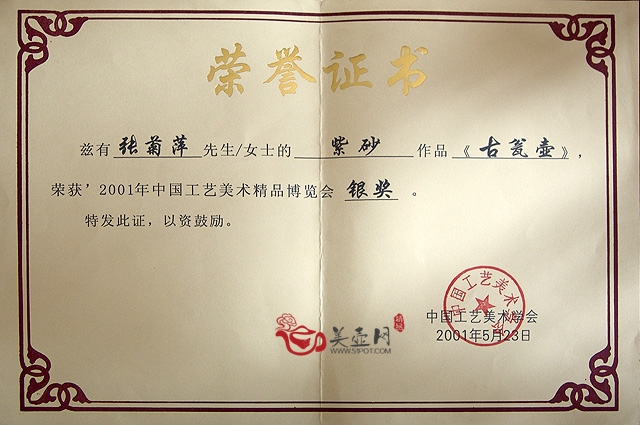 荣誉证书
兹有 张菊萍 先生/女士的 紫砂 作品《古瓮壶》，
荣获’2001年中国工艺美术精品博览会 银奖 。
特发此证，以资鼓励。
中国工艺美术学会
2001年5月23日
美壶网
WWW.51POT.COM